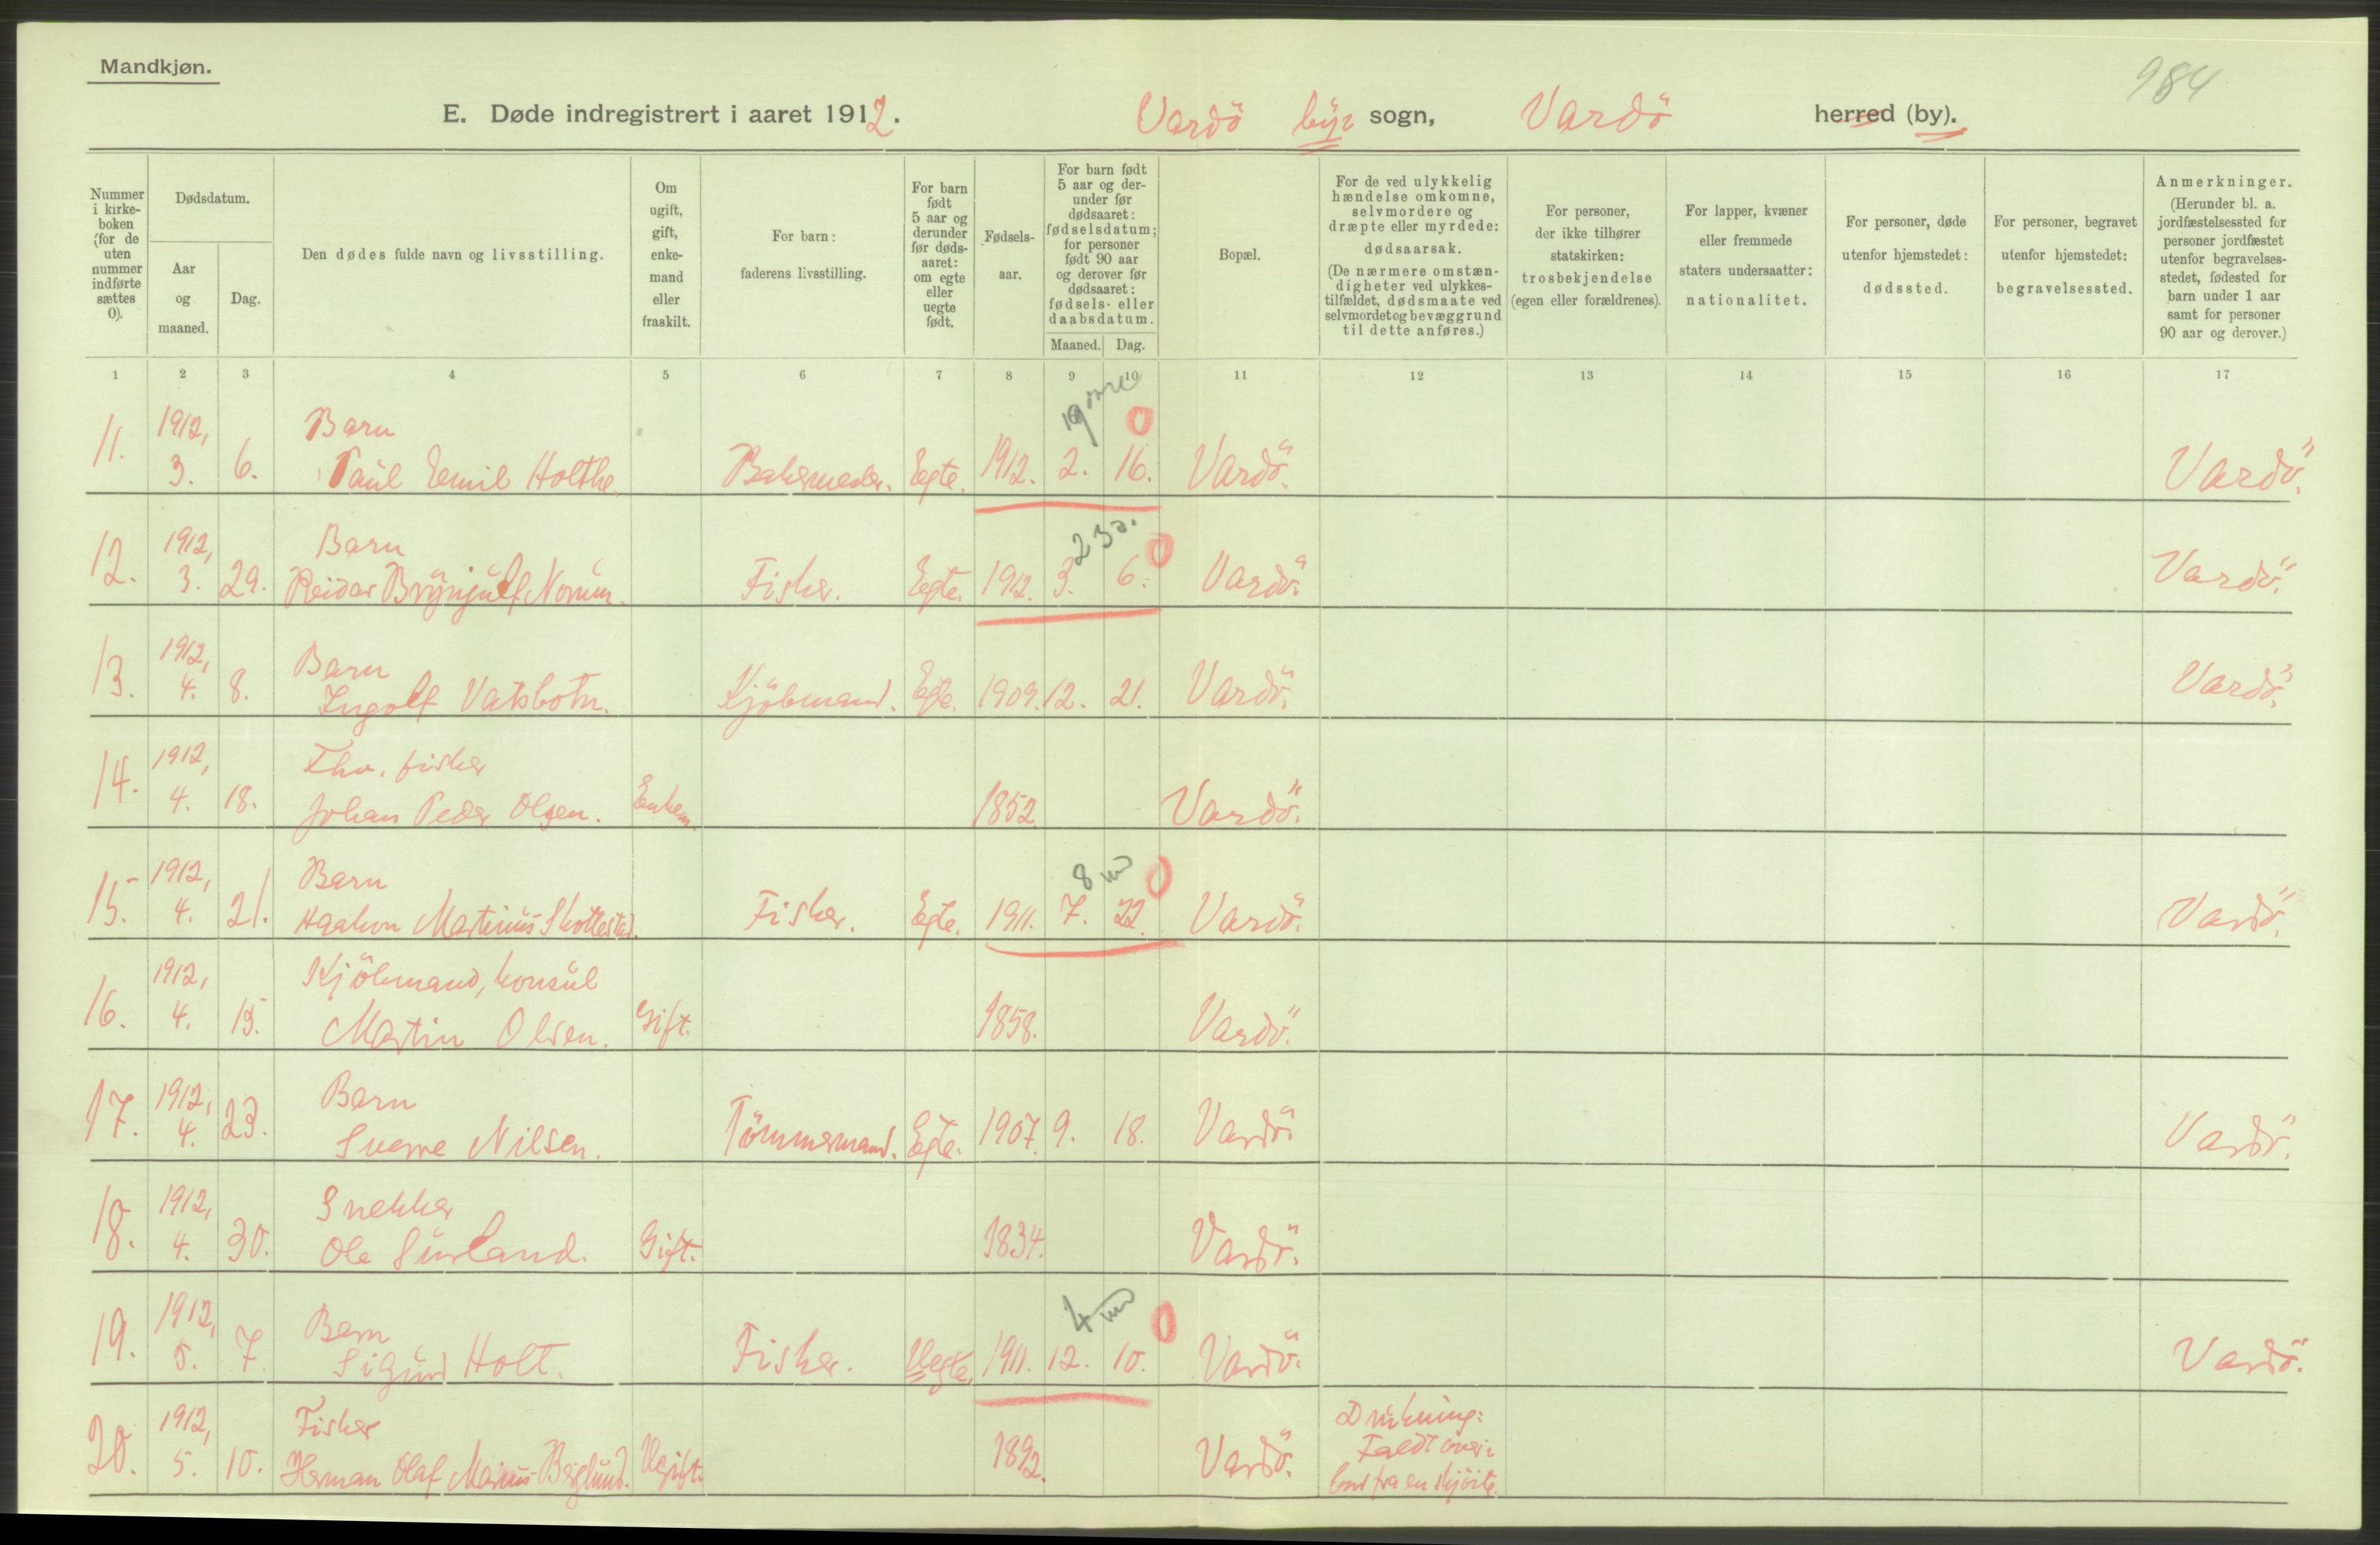 Mandkjøn.
984
E. Døde indregistrert i aaret 1912. Vardö by's sogn, Vardö herred (by).
Nummer i kirke- boken (for de uten nummer indførte sættes 0).
Dødsdatum.
Aar og maaned.
Dag.
Den dødes fulde navn og livsstilling.
Om ugift, gift, enke- mand eller fraskilt.
For barn: faderens livsstilling.
For barn født 5 aar og derunder før døds- aaret: om egte eller uegte født.
Fødsels- aar.
For barn født 5 aar og der- under før dødsaaret: fødselsdatum; for personer født 90 aar og derover før dødsaaret: fødsels- eller daabsdatum.
Maaned. Dag.
Bopæl.
For de ved ulykkelig hændelse omkomne, selvmordere og dræpte eller myrdede: dødsaarsak. (De nærmere omstæn- digheter ved ulykkes- tilfældet, dødsmaate ved selvmordet og bevæggrund til dette anføres.)
For personer, der ikke tilhører statskirken: trosbekjendelse (egen eller forældrenes).
For lapper, kvæner eller fremmede staters undersaatter: nationalitet.
For personer, døde utenfor hjemstedet: dødssted.
For personer, begravet utenfor hjemstedet: begravelsessted.
Anmerkninger. (Herunder bl. a. jordfæstelsessted for personer jordfæstet utenfor begravelses- stedet, fødested for barn under 1 aar samt for personer 90 aar og derover.)
1 2 3 4 5 6 7 8 9 10 11 12 13 14 15 16 17
1912, Barn 19 0
11. 3. 6. Paul Emil Holthe. Bakermester. Egte. 1912. 2. 16. Vardö. Vardö.
1912, Barn 23 d. 0
12. 3. 29. Reidar Brynjulf Norum. Fisker. Egte. 1912. 3. 6. Vardö. Vardö.
1912, Barn
13. 4. 8. Ingolf Vatsbotn. Kjöbmand. Egte. 1909. 12. 21. Vardö. Vardö.
1912, Fhv. fisker
14. 4. 18. Johan Peder Olsen. Enkem. 1852. Vardö.
1912, Barn 8 m 0
15. 4. 21. Haakon Martinus Skottestad. Fisker. Egte. 1911. 7. 22. Vardö. Vardö.
1912, Kjöbmand, konsul
16. 4. 15. Martin Olsen. Gift. 1858. Vardö.
1912, Barn
17. 4. 23. Sverre Nilsen. Tömmermand. Egte. 1907. 9. 18. Vardö. Vardö.
1912, Snekker
18. 4. 30. Ole Surland. Gift. 1834. Vardö.
1912, Barn 4 m 0
19. 5. 7. Sigurd Holt. Fisker. Uegte. 1911. 12. 10. Vardö. Vardö.
1912, Fisker Drukning:
20. 5. 10. Herman Olaf Marius Berglund. Ugift. 1892. Vardö. Faldt over
bord fra en skjöite.